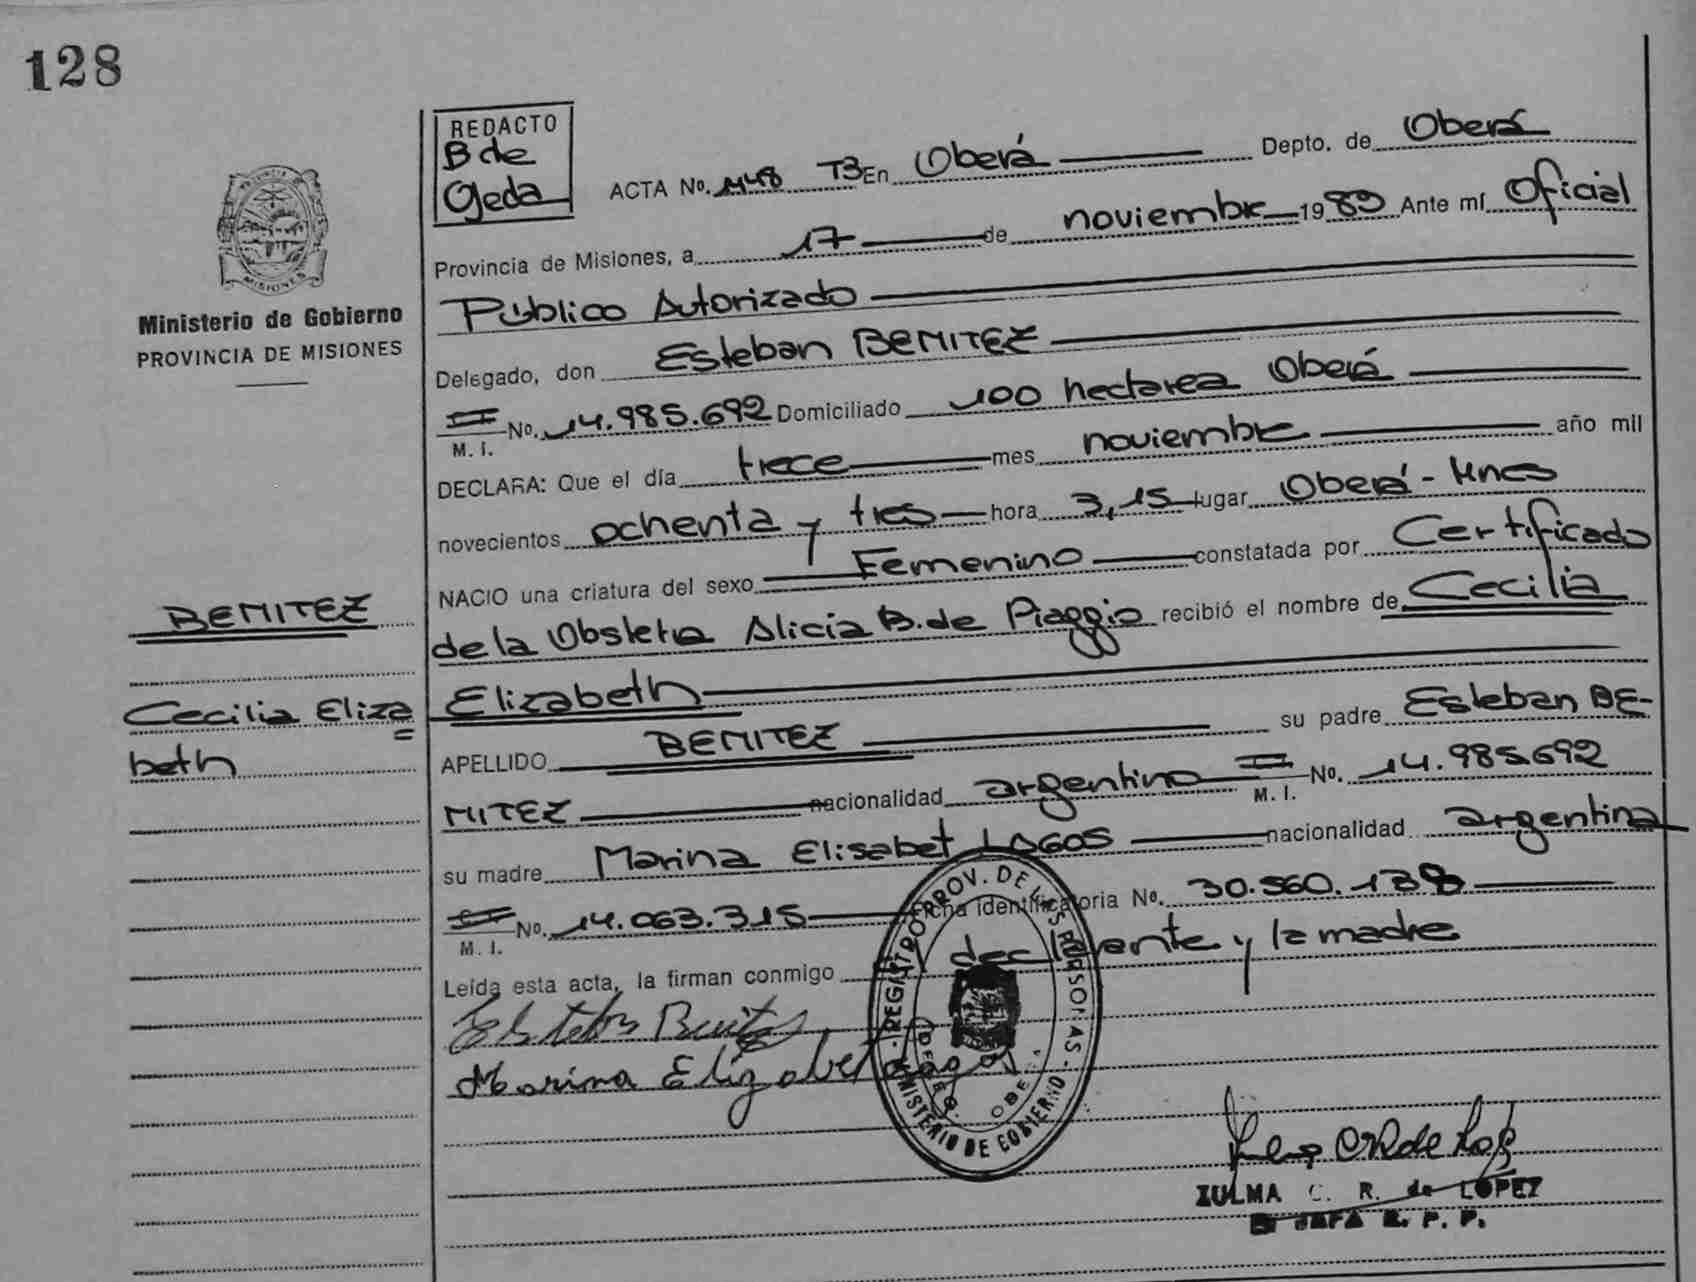 128
REDACTO
B de
Ojeda
ACTA No. 1148 T3 En Oberá Depto. de Oberá
Provincia de Misiones, a 17 de noviembre 1983 Ante mí Oficial
Público Autorizado
Delegado, don Esteban BENITEZ
M. I. No. 14.985.692 Domiciliado 100 hectarea Oberá
DECLARA: Que el día trece mes noviembre año mil
novecientos ochenta y tres hora 3,15 lugar Oberá - Mnes
NACIO una criatura del sexo Femenino constatada por Certificado
de la Obstetra Alicia B. de Piaggio recibió el nombre de Cecilia
Elizabeth
APELLIDO BENITEZ su padre Esteban BE-
NITEZ nacionalidad argentino M. I. No. 14.985692
su madre Marina Elisabet LAGOS nacionalidad argentina
M. I. No. 14.063.315 Ficha identificatoria No. 30.560.138
Leída esta acta, la firman conmigo declarante y la madre
Marina Elizabet Lagos
ZULMA C. R. de LÓPEZ
JEFA R. P. P.
MISIONES
Ministerio de Gobierno
PROVINCIA DE MISIONES
BENITEZ
Cecilia Eliza=
beth
REGISTRO PROV. DE LAS PERSONAS - MINISTERIO DE GOBIERNO